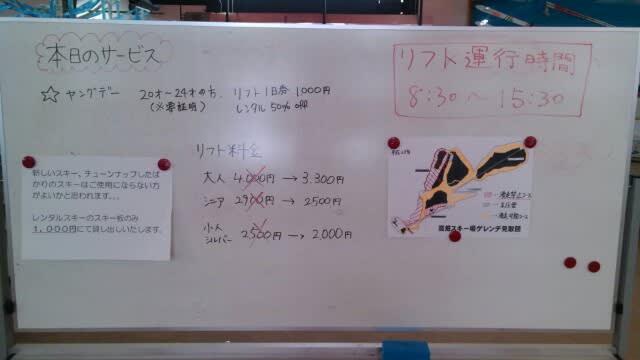 本日のサービス
☆ ヤングデー 20才～24才の方、リフト1日券 1000円
(※要証明) レンタル 50% off
リフト運行時間
8:30～15:30
リフト料金
大人 4,000円 → 3,300円
シニア 2900円 → 2500円
小人
シルバー 2500円 → 2,000円
新しいスキー、チューンナップしたば
かりのスキーはご使用にならない方
がよいかと思われます。。。
レンタルスキーのスキー板のみ
１，０００円にて貸し出しいたします。
滑走禁止コース
滑走可能コース
スキー場ゲレンデ見取図